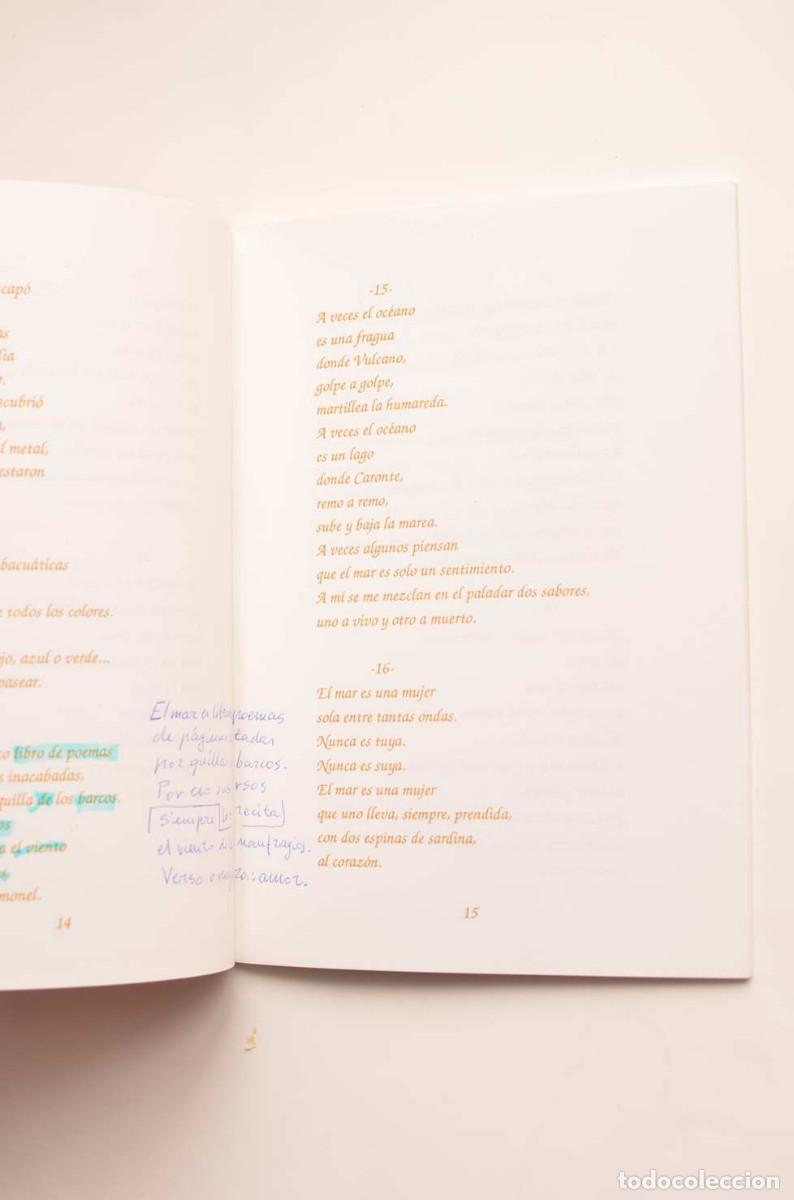 capó
as
lia
o.
scubrió
a,
l metal,
estaron
bacuáticas
e todos los colores.
jo, azul o verde...
pasear.
co libro de poemas
s inacabadas,
quilla de los barcos.
os
a el viento
s,
monel.
14
El mar es libro poemas
de págin tadas
por quillas barcos.
Por eso sus rsos
siempre los recita
el viento de naufragios.
Verso a : amor.
-15-
A veces el océano
es una fragua
donde Vulcano,
golpe a golpe,
martillea la humareda.
A veces el océano
es un lago
donde Caronte,
remo a remo,
sube y baja la marea.
A veces algunos piensan
que el mar es solo un sentimiento.
A mí se me mezclan en el paladar dos sabores,
uno a vivo y otro a muerto.
-16-
El mar es una mujer
sola entre tantas ondas.
Nunca es tuya.
Nunca es suya.
El mar es una mujer
que uno lleva, siempre, prendida,
con dos espinas de sardina,
al corazón.
15
todocoleccion